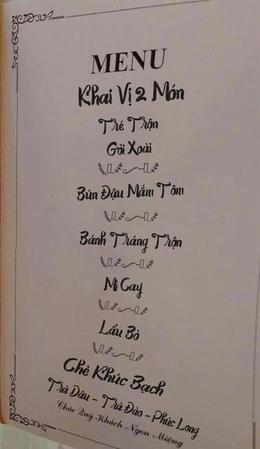 MENU
Khai Vị 2 Món
Tré Trộn
Gỏi Xoài
Bún Đậu Mắm Tôm
Bánh Tráng Trộn
Mì Cay
Lẩu Bò
Chè Khúc Bạch
Trà Dâu - Trà Đào - Phúc Long
Chúc Quý Khách Ngon Miệng